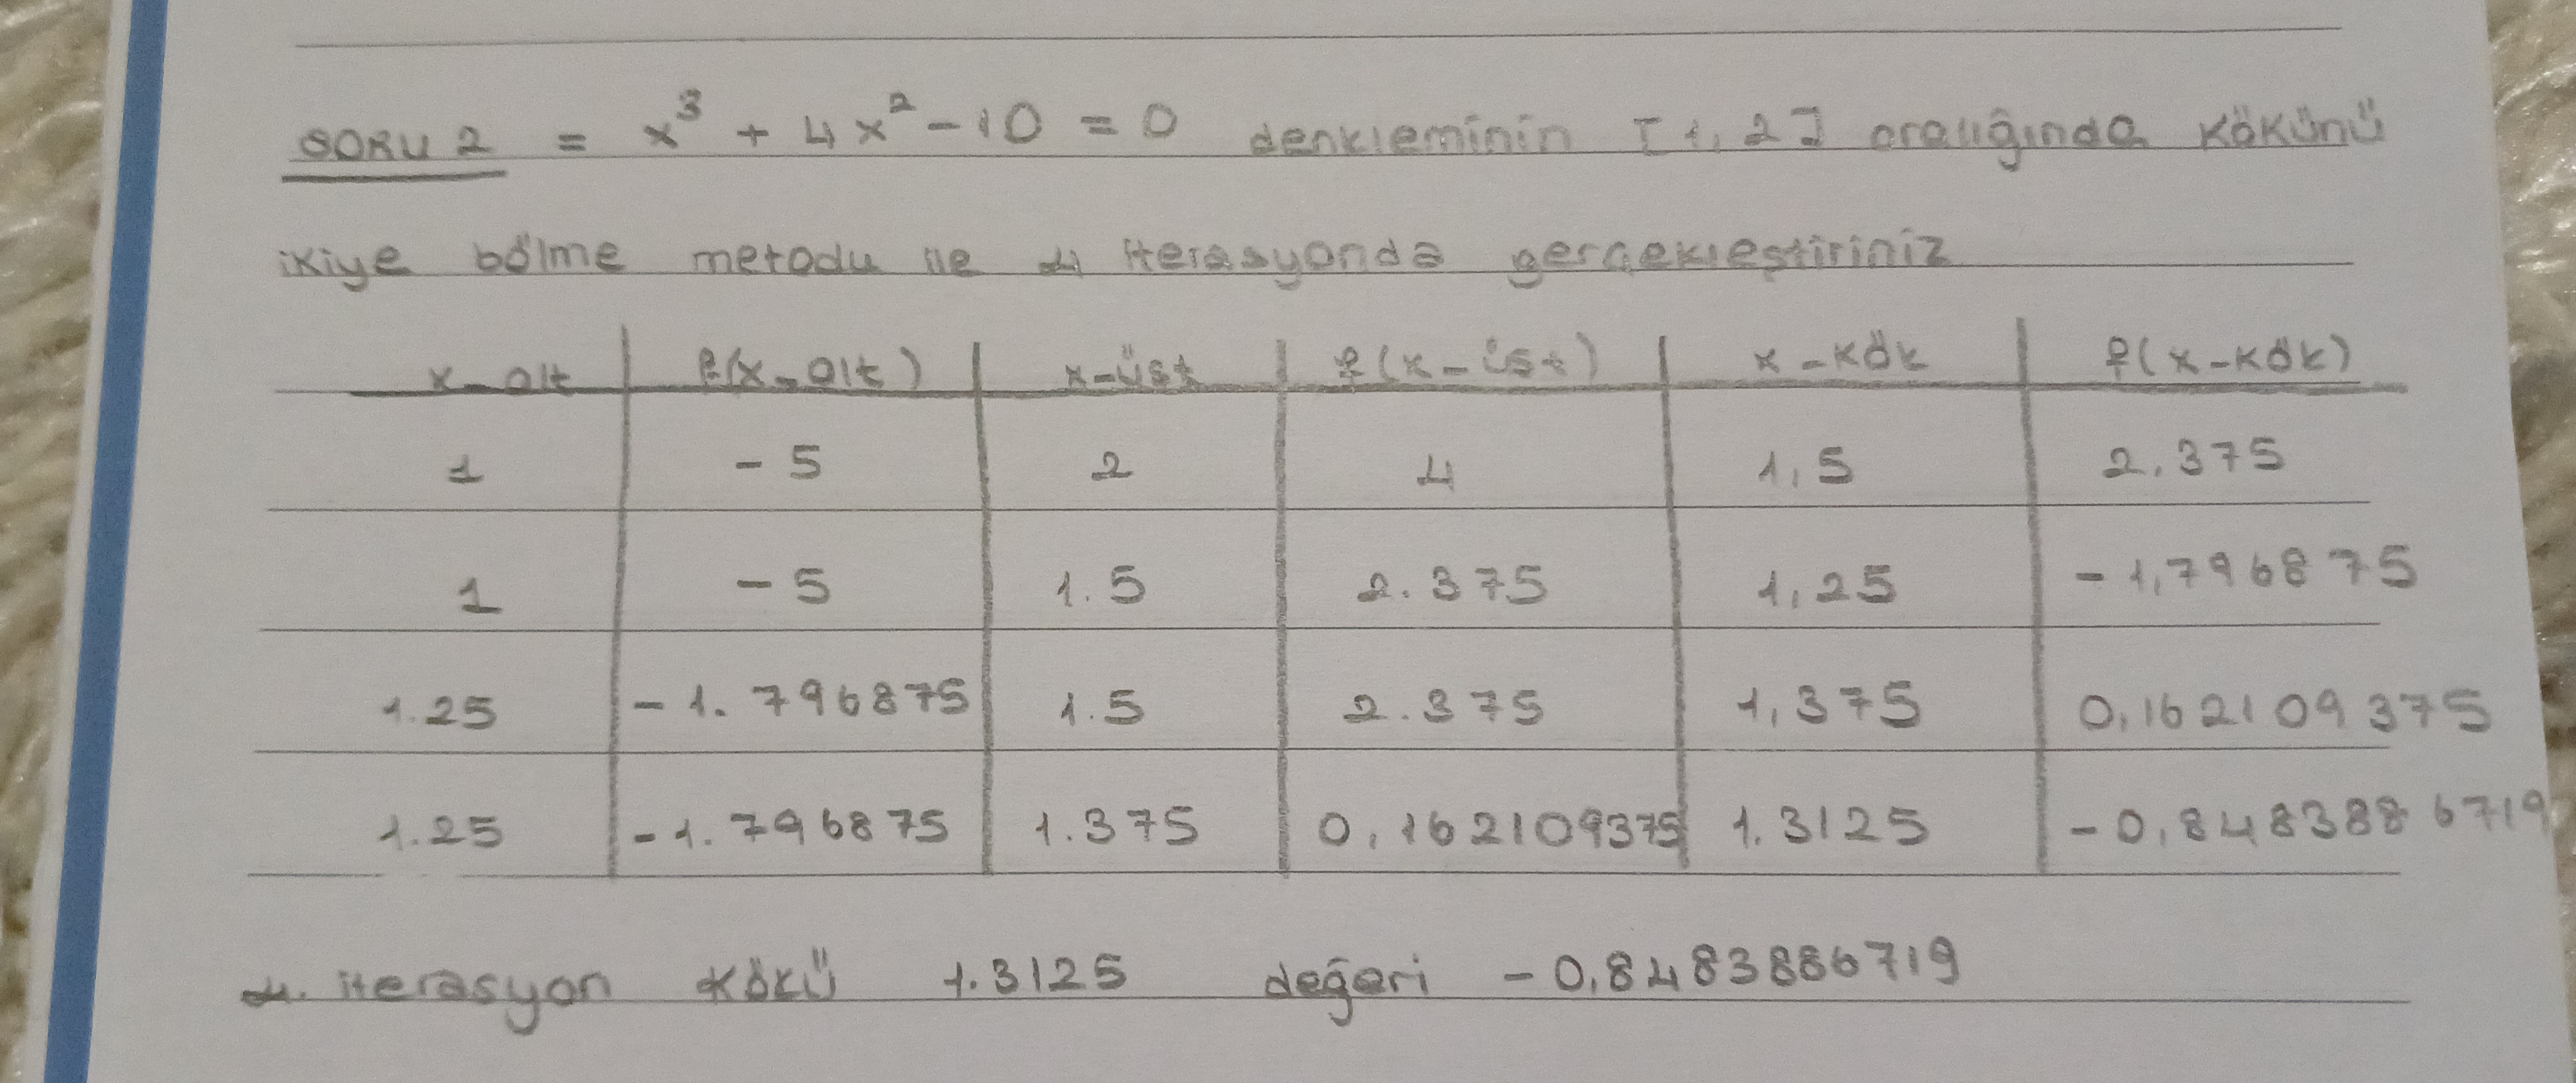 SORU 2 = x³ + 4x² - 10 = 0 denkleminin [1, 2] aralığında kökünü
ikiye bölme metodu ile 4 iterasyonda gerçekleştiriniz
x-alt f(x-alt) x-üst f(x-üst) x-kök f(x-kök)
1 -5 2 4 1,5 2.375
1 -5 1.5 2.375 1,25 -1,796875
1.25 -1.796875 1.5 2.375 1,375 0,162109375
1.25 -1.796875 1.375 0,162109375 1.3125 -0,8483886719
4. iterasyon kökü 1.3125 değeri -0,8483886719